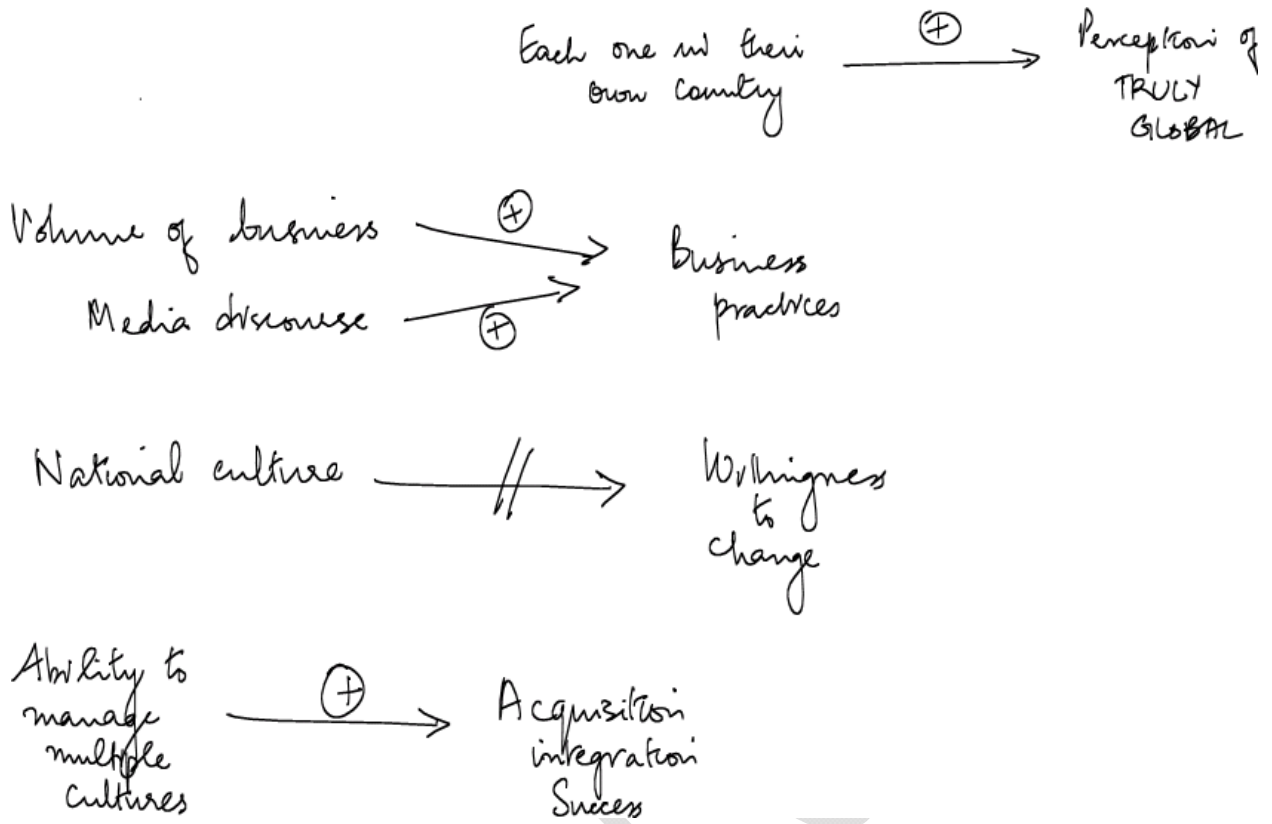 Each one in their
own country
+
Perception of
TRULY
GLOBAL
Volume of business
+
Media discourse
+
Business
practices
National culture
Willingness
to
change
Ability to
manage
multiple
cultures
+
Acquisition
integration
Success